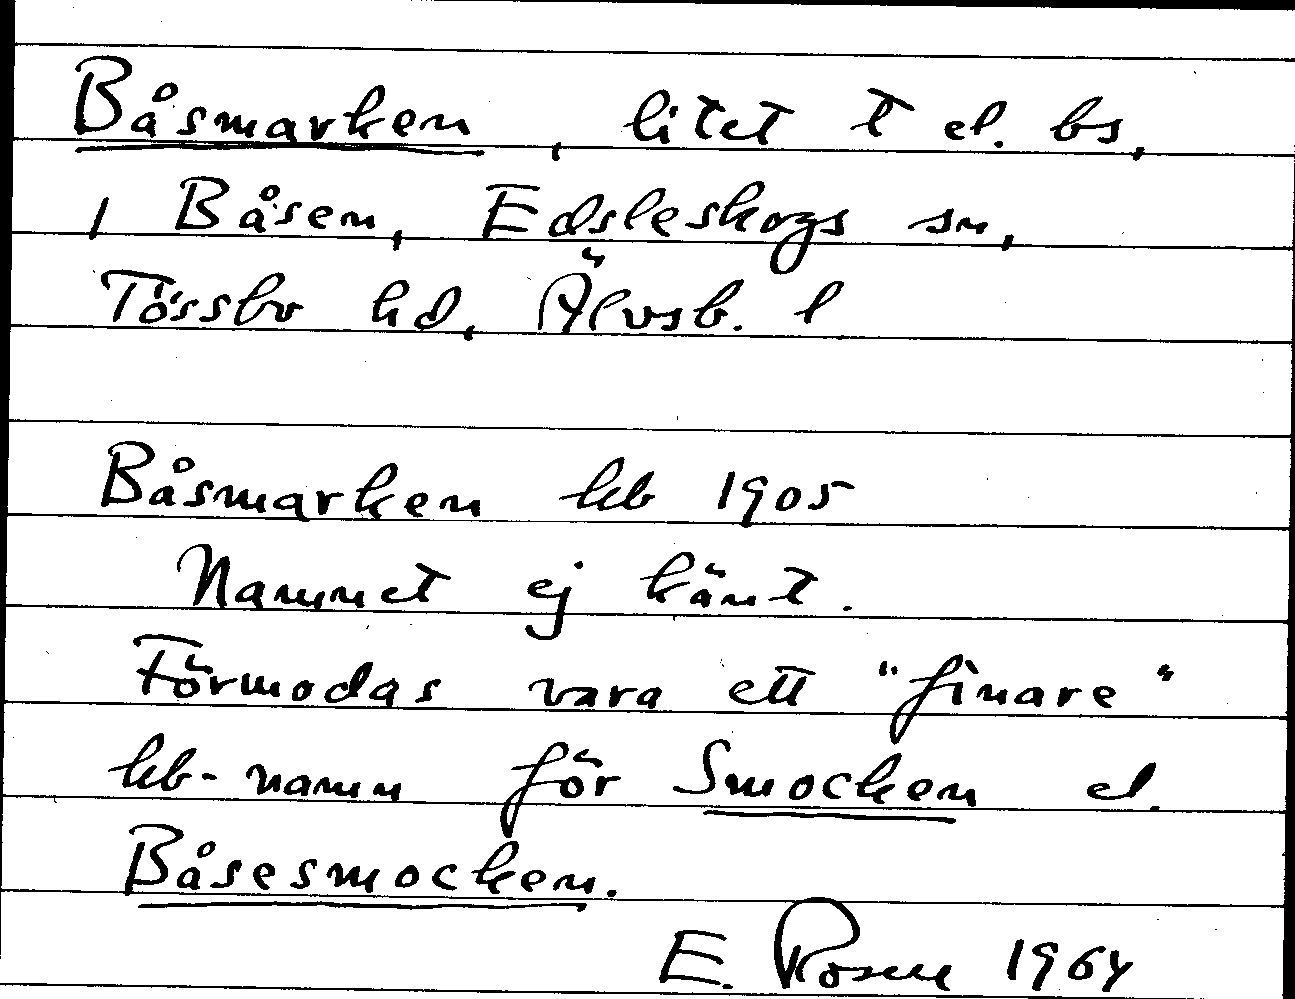 Båsmarken, litet t el. bs,
i Båsen, Edsleskogs sn,
Tössbo hd, Älvsb. l
Båsmarken kb 1905
Namnet ej känt.
Förmodas vara ett "finare"
kb-namn för Smocken el.
Båsesmocken.
E. Rosen 1964